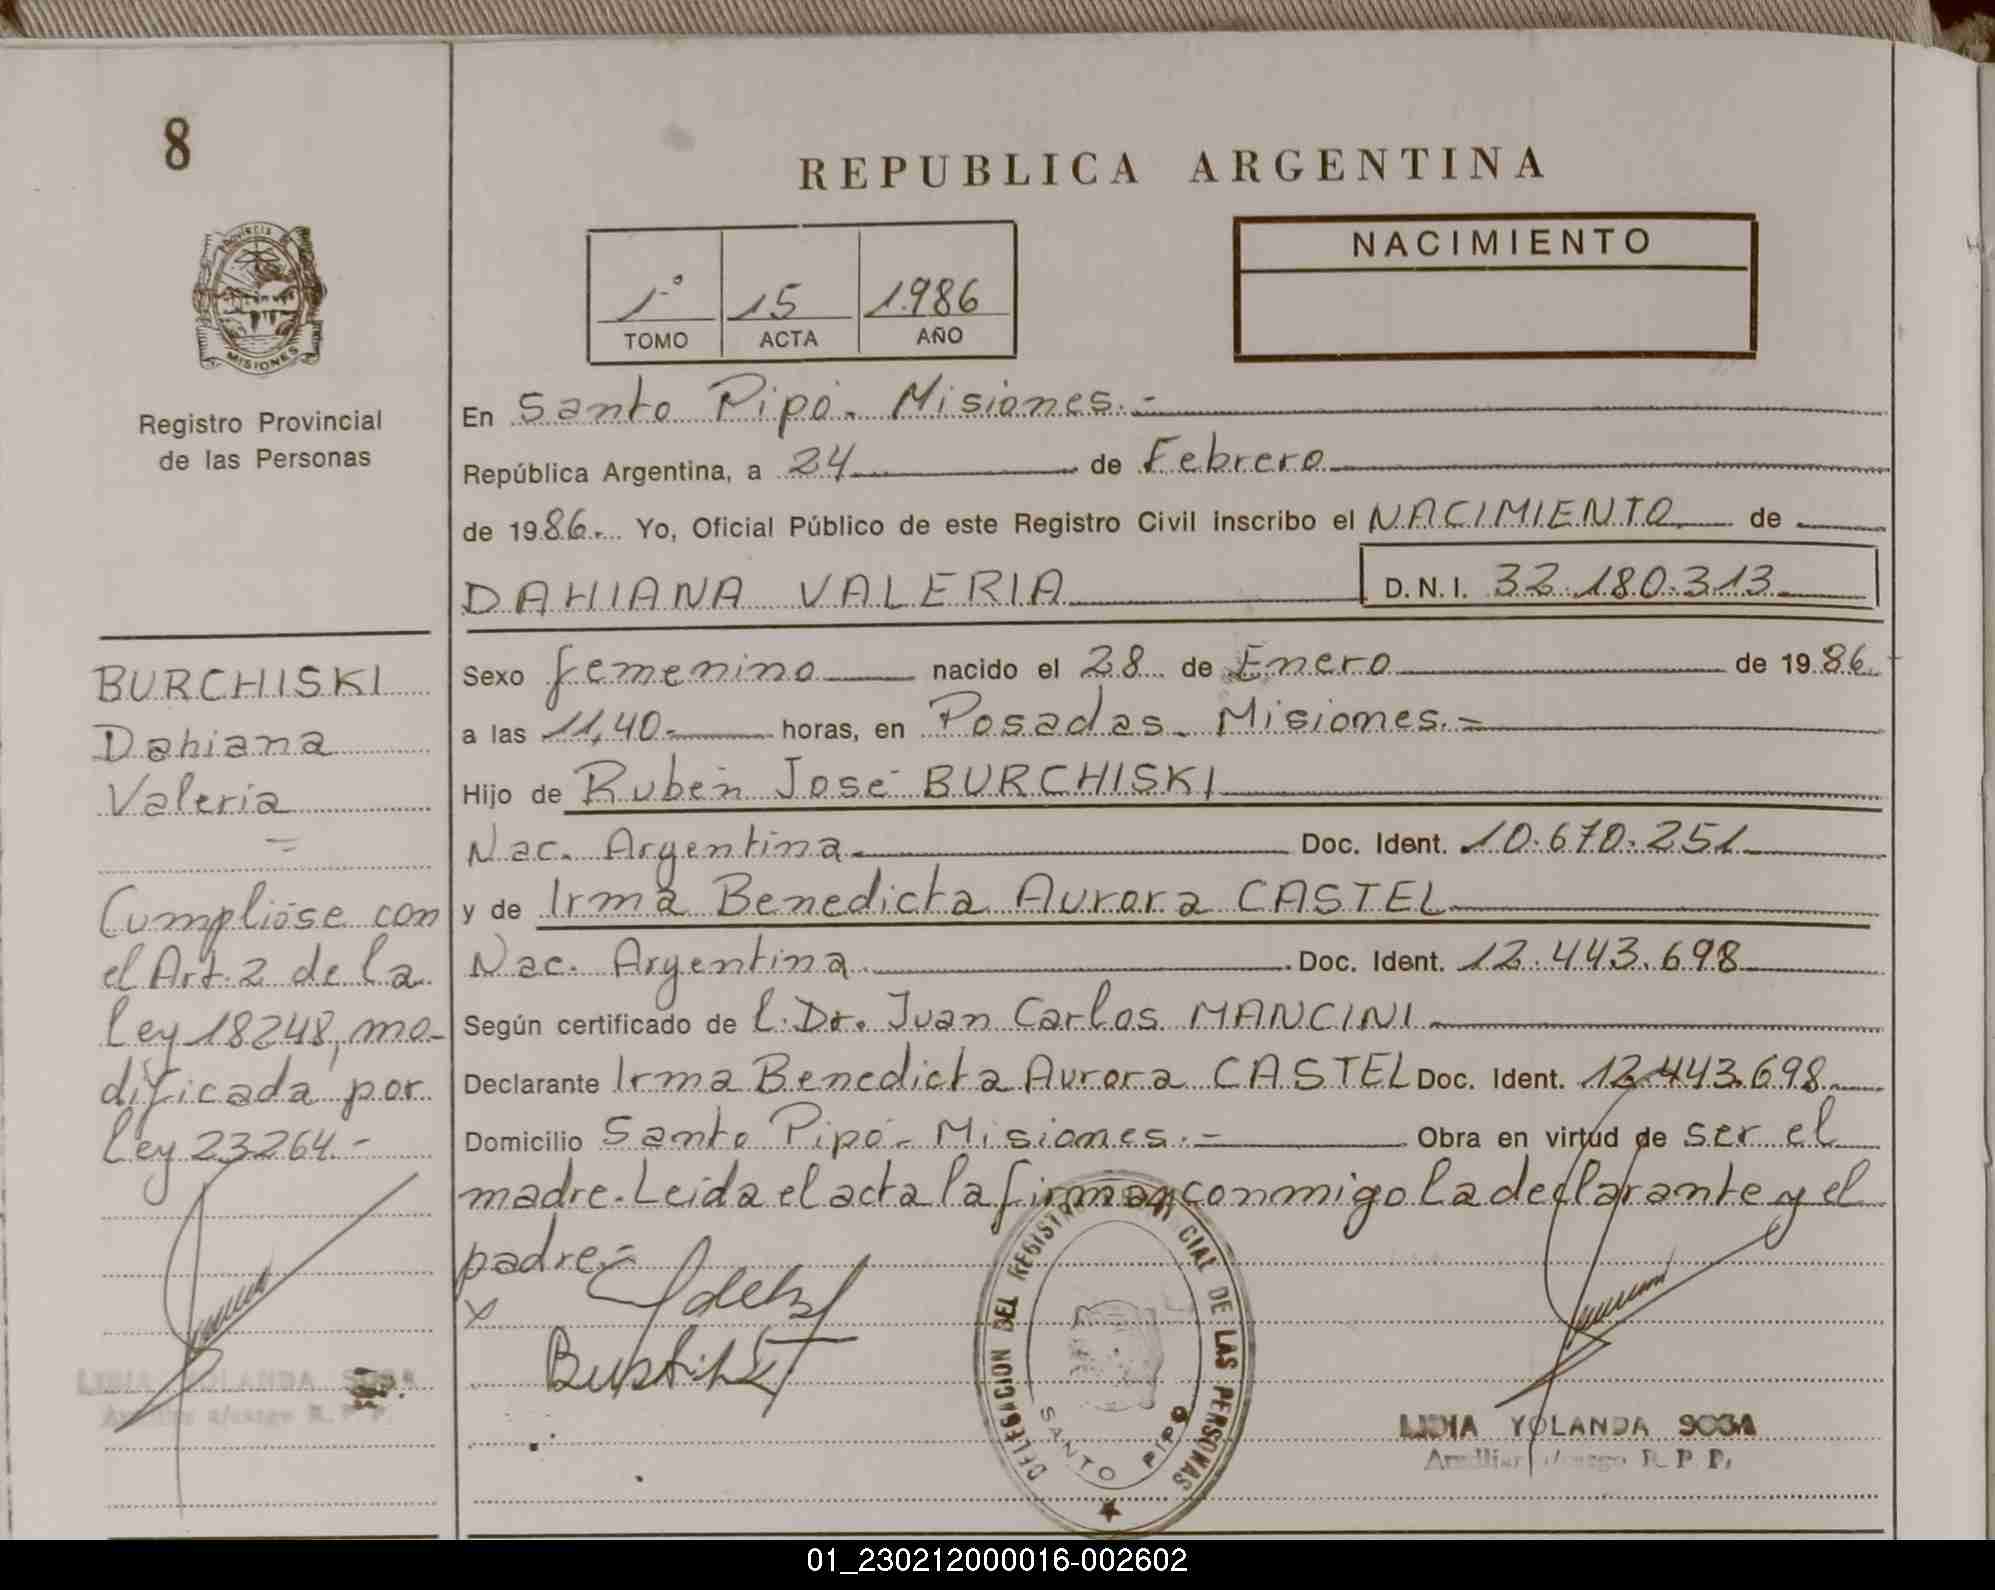 8
PROVINCIA DE
MISIONES
Registro Provincial
de las Personas
REPUBLICA ARGENTINA
1º 15 1986
TOMO ACTA AÑO
NACIMIENTO
En Santo Pipó. Misiones.-
República Argentina, a 24 de Febrero
de 1986.. Yo, Oficial Público de este Registro Civil inscribo el NACIMIENTO de
DAHIANA VALERIA D.N.I. 32.180.313
Sexo femenino nacido el 28 de Enero de 1986
a las 11,40 horas, en Posadas. Misiones.=
Hijo de Rubén José BURCHISKI
Nac. Argentina Doc. Ident. 10.670.251
y de Irma Benedicta Aurora CASTEL
Nac. Argentina Doc. Ident. 12.443.698
Según certificado de l. Dr. Juan Carlos MANCINI
Declarante Irma Benedicta Aurora CASTEL Doc. Ident. 12.443.698
Domicilio Santo Pipó- Misiones.- Obra en virtud de ser el
madre. Leída el acta la firman conmigo la declarante y el
padre.=
x
BURCHISKI
Dahiana
Valeria
=
Cumplióse con
el Art. 2 de la
Ley 18248, mo-
dificada por
Ley 23264.-
LIDIA YOLANDA SOSA
Auxiliar a/cargo R. P. P.
DELEGACION DEL REGISTRO PROVINCIAL DE LAS PERSONAS
SANTO PIPO
LIDIA YOLANDA SOSA
Auxiliar a/cargo R. P. P.
01_230212000016-002602